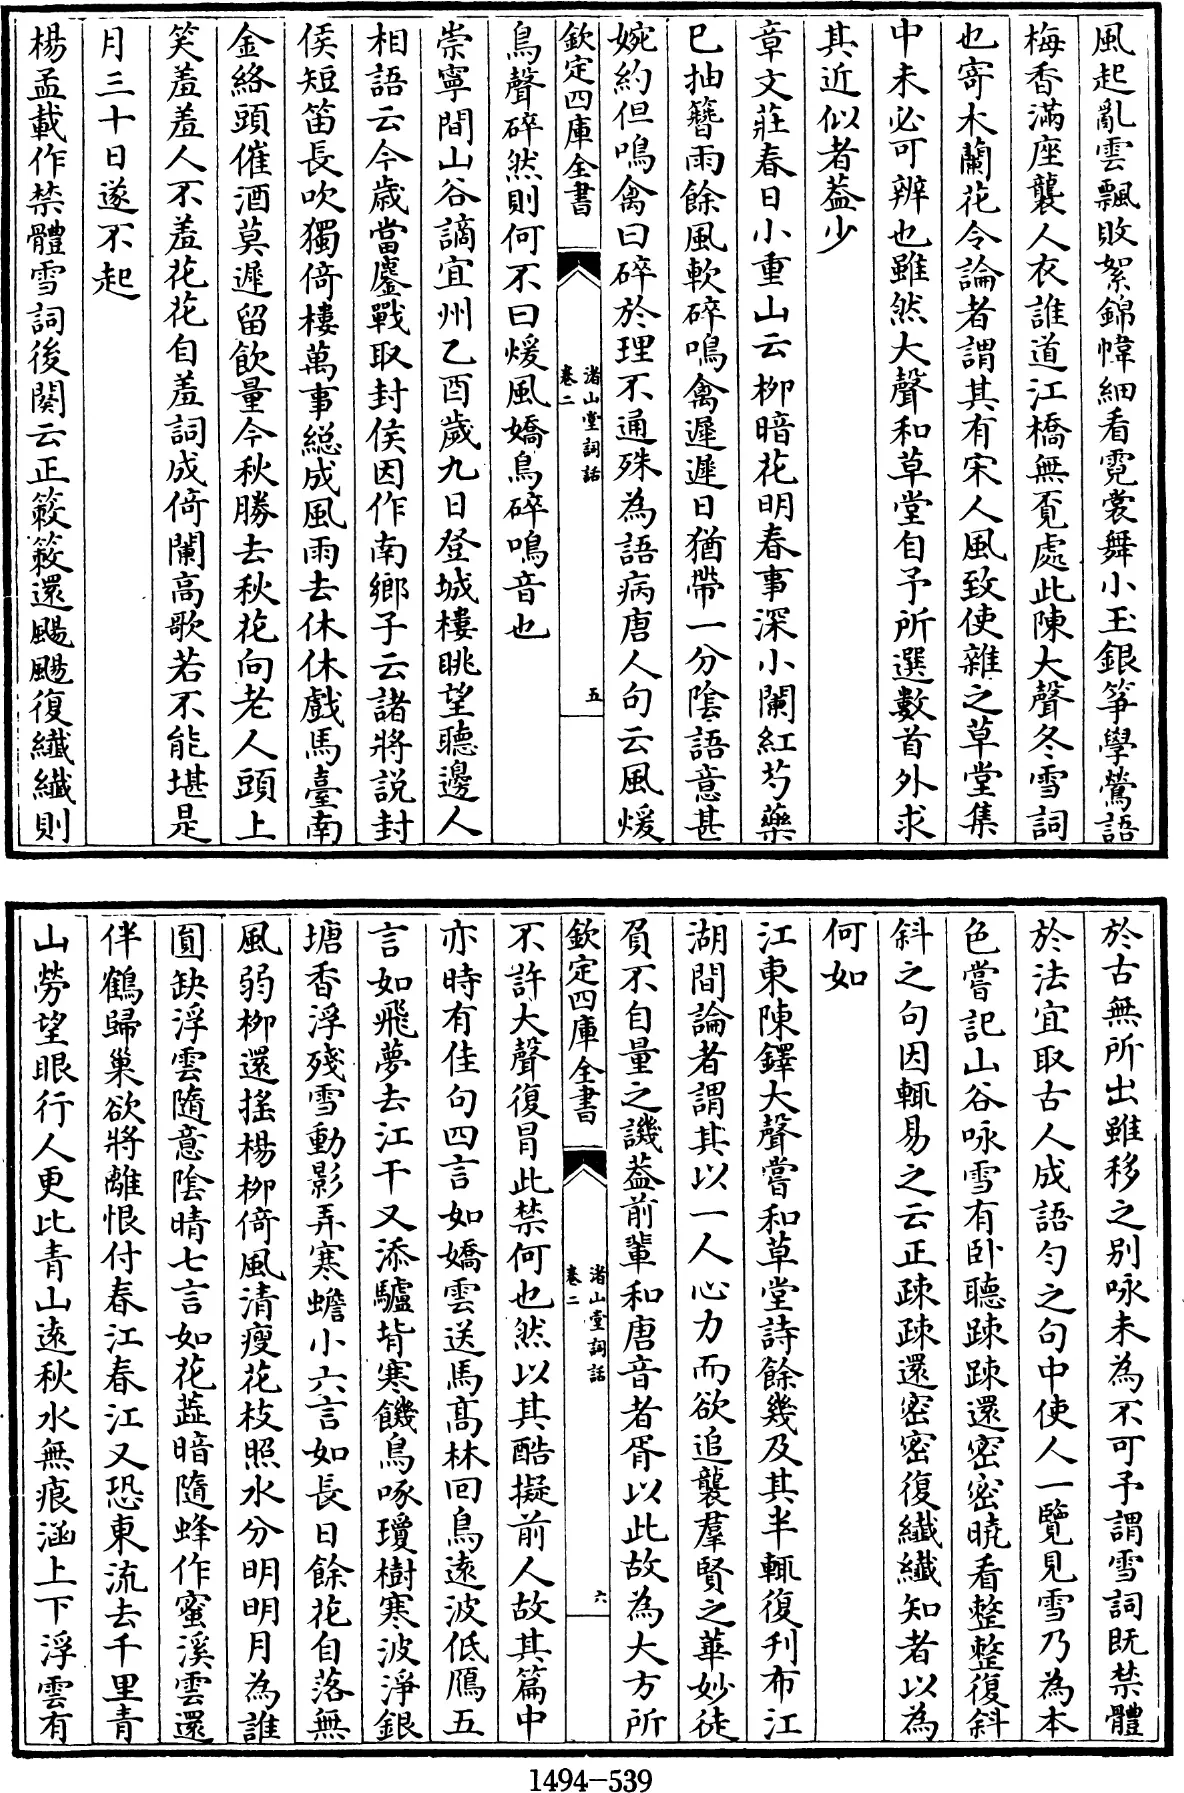 風起亂雲飄敗絮錦幃細看霓裳舞小玉銀筝學鶯語
梅香滿座襲人衣誰道江橋無覔處此陳大聲冬雪詞
也寄木蘭花令論者謂其有宋人風致使雜之草堂集
中未必可辨也雖然大聲和草堂自予所選數首外求
其近似者葢少
章文莊春日小重山云柳暗花明春事深小闌紅芍藥
已抽簪雨餘風軟碎鳴禽遲遲日猶帶一分陰語意甚
婉約但鳴禽曰碎於理不通殊為語病唐人句云風煖
欽定四庫全書
渚山堂詞話
卷二
五
鳥聲碎然則何不曰煖風嬌鳥碎鳴音也
崇寧間山谷謫宜州乙酉歲九日登城樓眺望聽邊人
相語云今歲當鏖戰取封侯因作南鄉子云諸將説封
侯短笛長吹獨倚樓萬事總成風雨去休休戲馬臺南
金絡頭催酒莫遲留飲量今秋勝去秋花向老人頭上
笑羞羞人不羞花花自羞詞成倚闌高歌若不能堪是
月三十日遂不起
楊孟載作禁體雪詞後闋云正簌簌還颺颺復纖纖則
於古無所出雖移之别咏未為不可予謂雪詞既禁體
於法宜取古人成語勻之句中使人一覽見雪乃為本
色嘗記山谷咏雪有卧聽疎疎還密密曉看整整復斜
斜之句因輒易之云正疎疎還密密復纖纖知者以為
何如
江東陳鐸大聲嘗和草堂詩餘幾及其半輒復刊布江
湖間論者謂其以一人心力而欲追襲羣賢之華妙徒
負不自量之譏葢前輩和唐音者胥以此故為大方所
欽定四庫全書
渚山堂詞話
卷二
六
不許大聲復冒此禁何也然以其酷擬前人故其篇中
亦時有佳句四言如嬌雲送馬髙林回鳥遠波低鴈五
言如飛夢去江干又添驢背寒饑鳥啄瓊樹寒波淨銀
塘香浮殘雪動影弄寒蟾小六言如長日餘花自落無
風弱柳還揺楊柳倚風清瘦花枝照水分明明月為誰
圓缺浮雲隨意陰晴七言如花蕋暗隨蜂作蜜溪雲還
伴鶴歸巢欲將離恨付春江春江又恐東流去千里青
山勞望眼行人更比青山遠秋水無痕涵上下浮雲有
1494-539